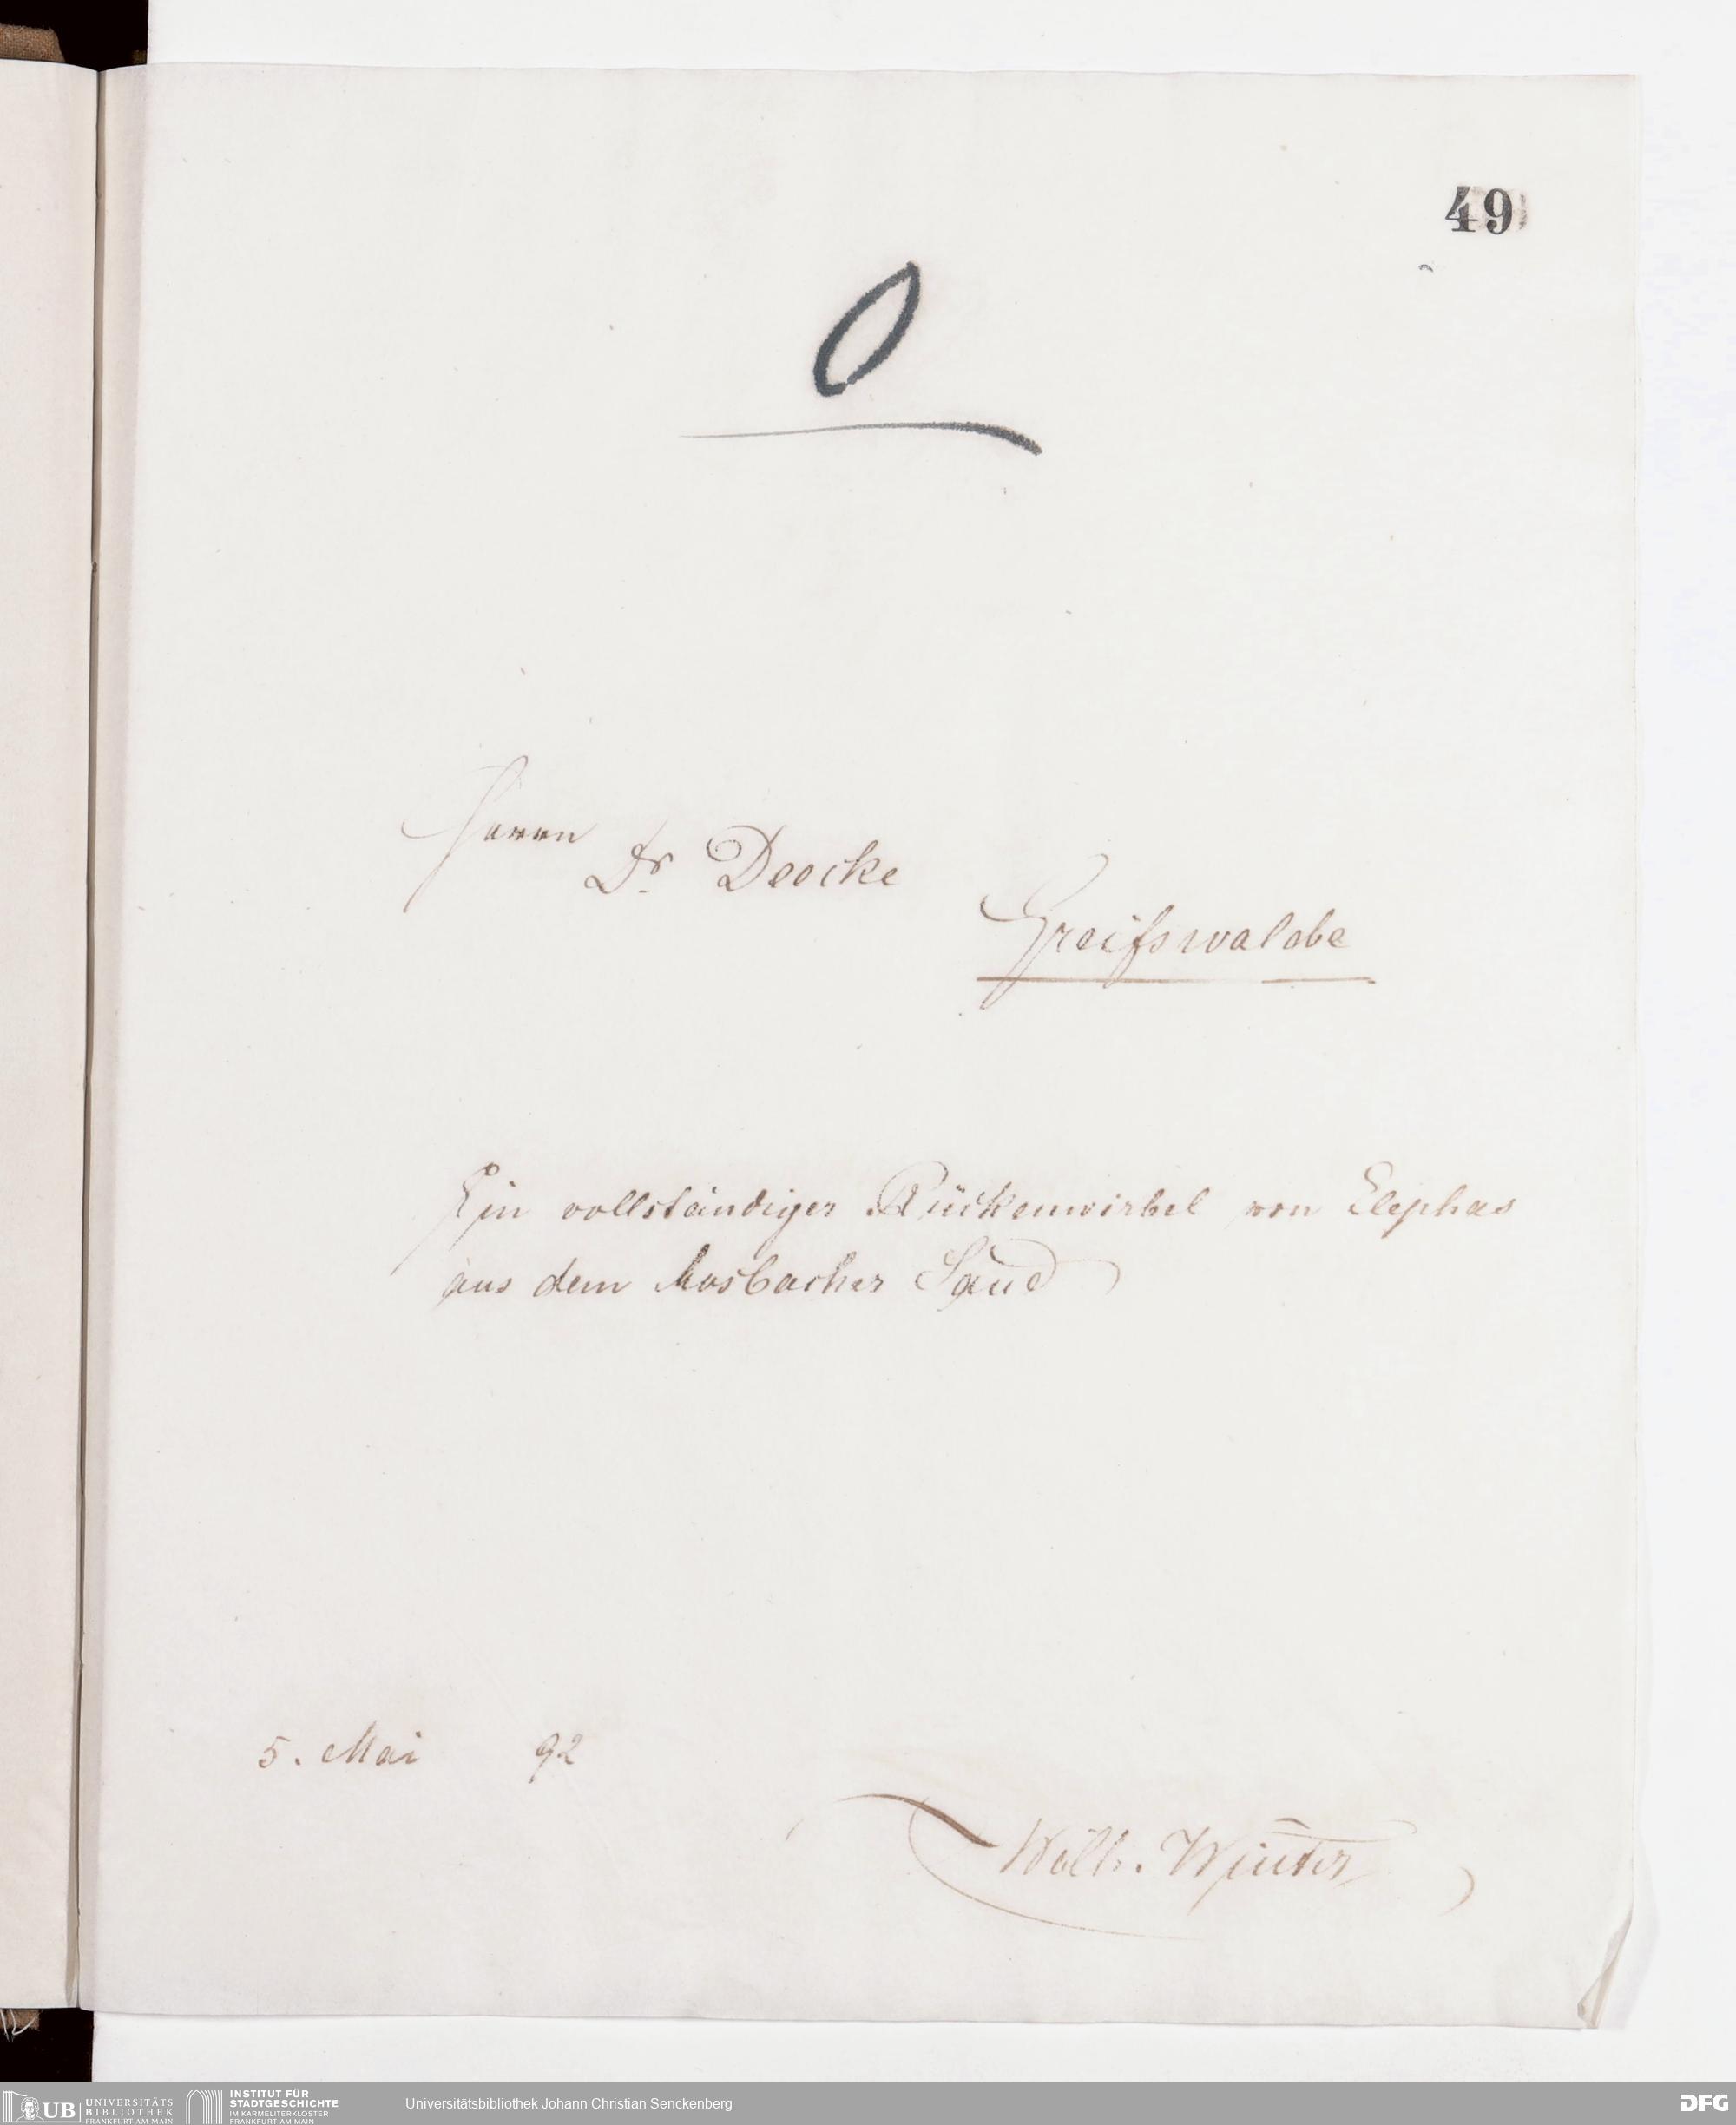 49
0
Herrn
Dr. Deecke
Greifswalde
Ein vollständiger Rückenwirbel von Elephas
aus dem Mosbacher Sand
5. Mai 92
Winter
UB UNIVERSITÄTS
BIBLIOTHEK
FRANKFURT AM MAIN
INSTITUT FÜR
STADTGESCHICHTE
IM KARMELITERKLOSTER
FRANKFURT AM MAIN
Universitätsbibliothek Johann Christian Senckenberg
DFG